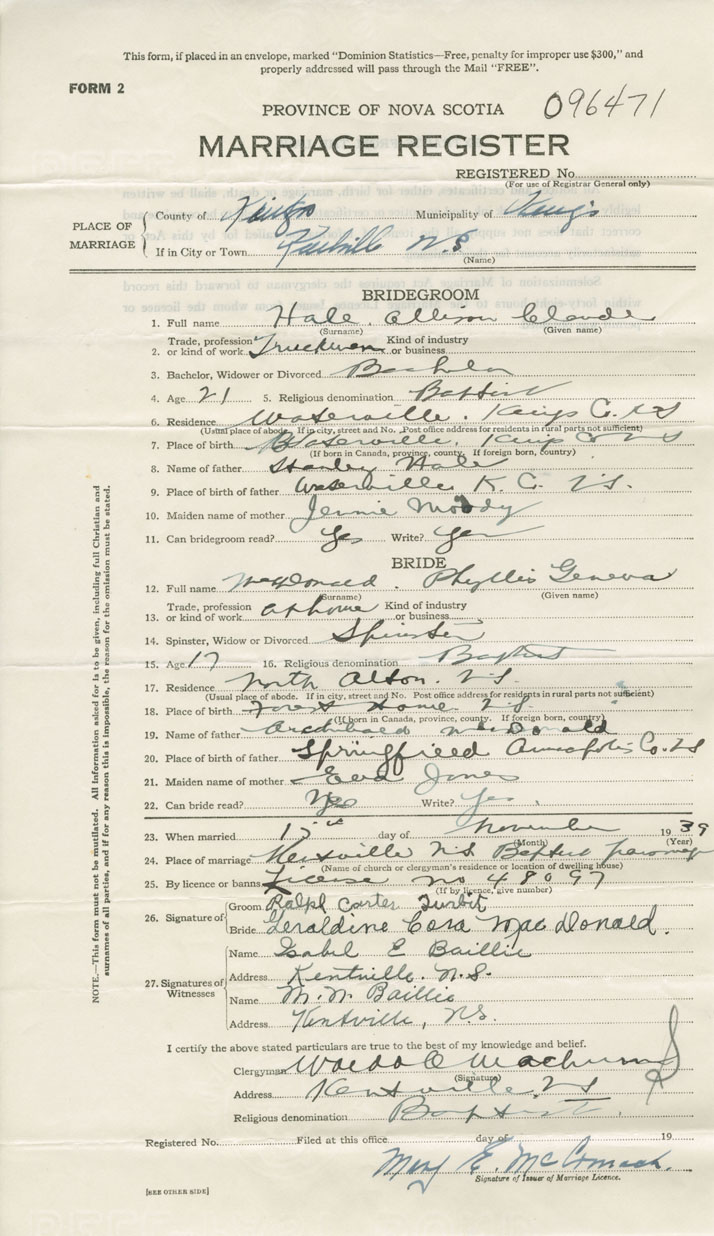 This form, if placed in an envelope, marked "Dominion Statistics—Free, penalty for improper use $300," and
properly addressed will pass through the Mail "FREE".
FORM 2
PROVINCE OF NOVA SCOTIA 096471
MARRIAGE REGISTER
REGISTERED No.
(For use of Registrar General only)
PLACE OF MARRIAGE
County of Kings Municipality of Kings
If in City or Town Kentville N.S
(Name)
BRIDEGROOM
1. Full name Hale, Allison Claude
(Surname) (Given name)
2. Trade, profession or kind of work Truckman Kind of industry or business
3. Bachelor, Widower or Divorced Bachelor
4. Age 21 5. Religious denomination Baptist
6. Residence Waterville, Kings C. NS
(Usual place of abode. If in city, street and No. Post office address for residents in rural parts not sufficient)
7. Place of birth Waterville, Kings Co NS
(If born in Canada, province, county. If foreign born, country)
8. Name of father Stanley Hale
9. Place of birth of father Waterville K. C. N.S.
10. Maiden name of mother Jennie Moody
11. Can bridegroom read? Yes Write? Yes
BRIDE
12. Full name McDonald. Phyllis Geneva
(Surname) (Given name)
13. Trade, profession or kind of work at home Kind of industry or business
14. Spinster, Widow or Divorced Spinster
15. Age 17 16. Religious denomination Baptist
17. Residence North Alton. N.S.
(Usual place of abode. If in city, street and No. Post office address for residents in rural parts not sufficient)
18. Place of birth Forest Home N.S.
(If born in Canada, province, county. If foreign born, country)
19. Name of father Archibald McDonald
20. Place of birth of father Springfield Annapolis Co. NS
21. Maiden name of mother Jones
22. Can bride read? Yes Write? Yes.
23. When married 17th day of November 1939
(Month) (Year)
24. Place of marriage Kentville N.S. Baptist parsonage
(Name of church or clergyman's residence or location of dwelling house)
25. By licence or banns License no 48097
(If by licence, give number)
26. Signature of
Groom Ralph Carter Turbit
Bride Geraldine Cora MacDonald.
27. Signatures of Witnesses
Name Isabel E Baillie
Address Kentville. N.S.
Name M. W. Baillie
Address Kentville, N.S.
I certify the above stated particulars are true to the best of my knowledge and belief.
Clergyman Waldo C Machum
(Signature)
Address Kentville, NS
Religious denomination Baptist.
Registered No. Filed at this office day of 19
Mary E. McCormack.
Signature of Issuer of Marriage Licence.
[SEE OTHER SIDE]
NOTE.—This form must not be mutilated. All Information asked for is to be given, including full Christian and
surnames of all parties, and if for any reason this is impossible, the reason for the omission must be stated.